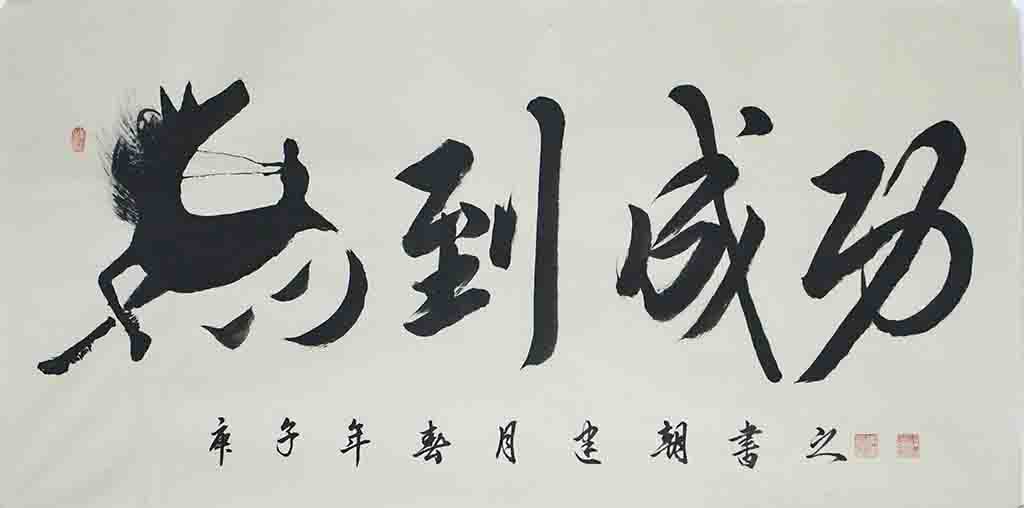 馬到成功
庚子年春月建朝書之